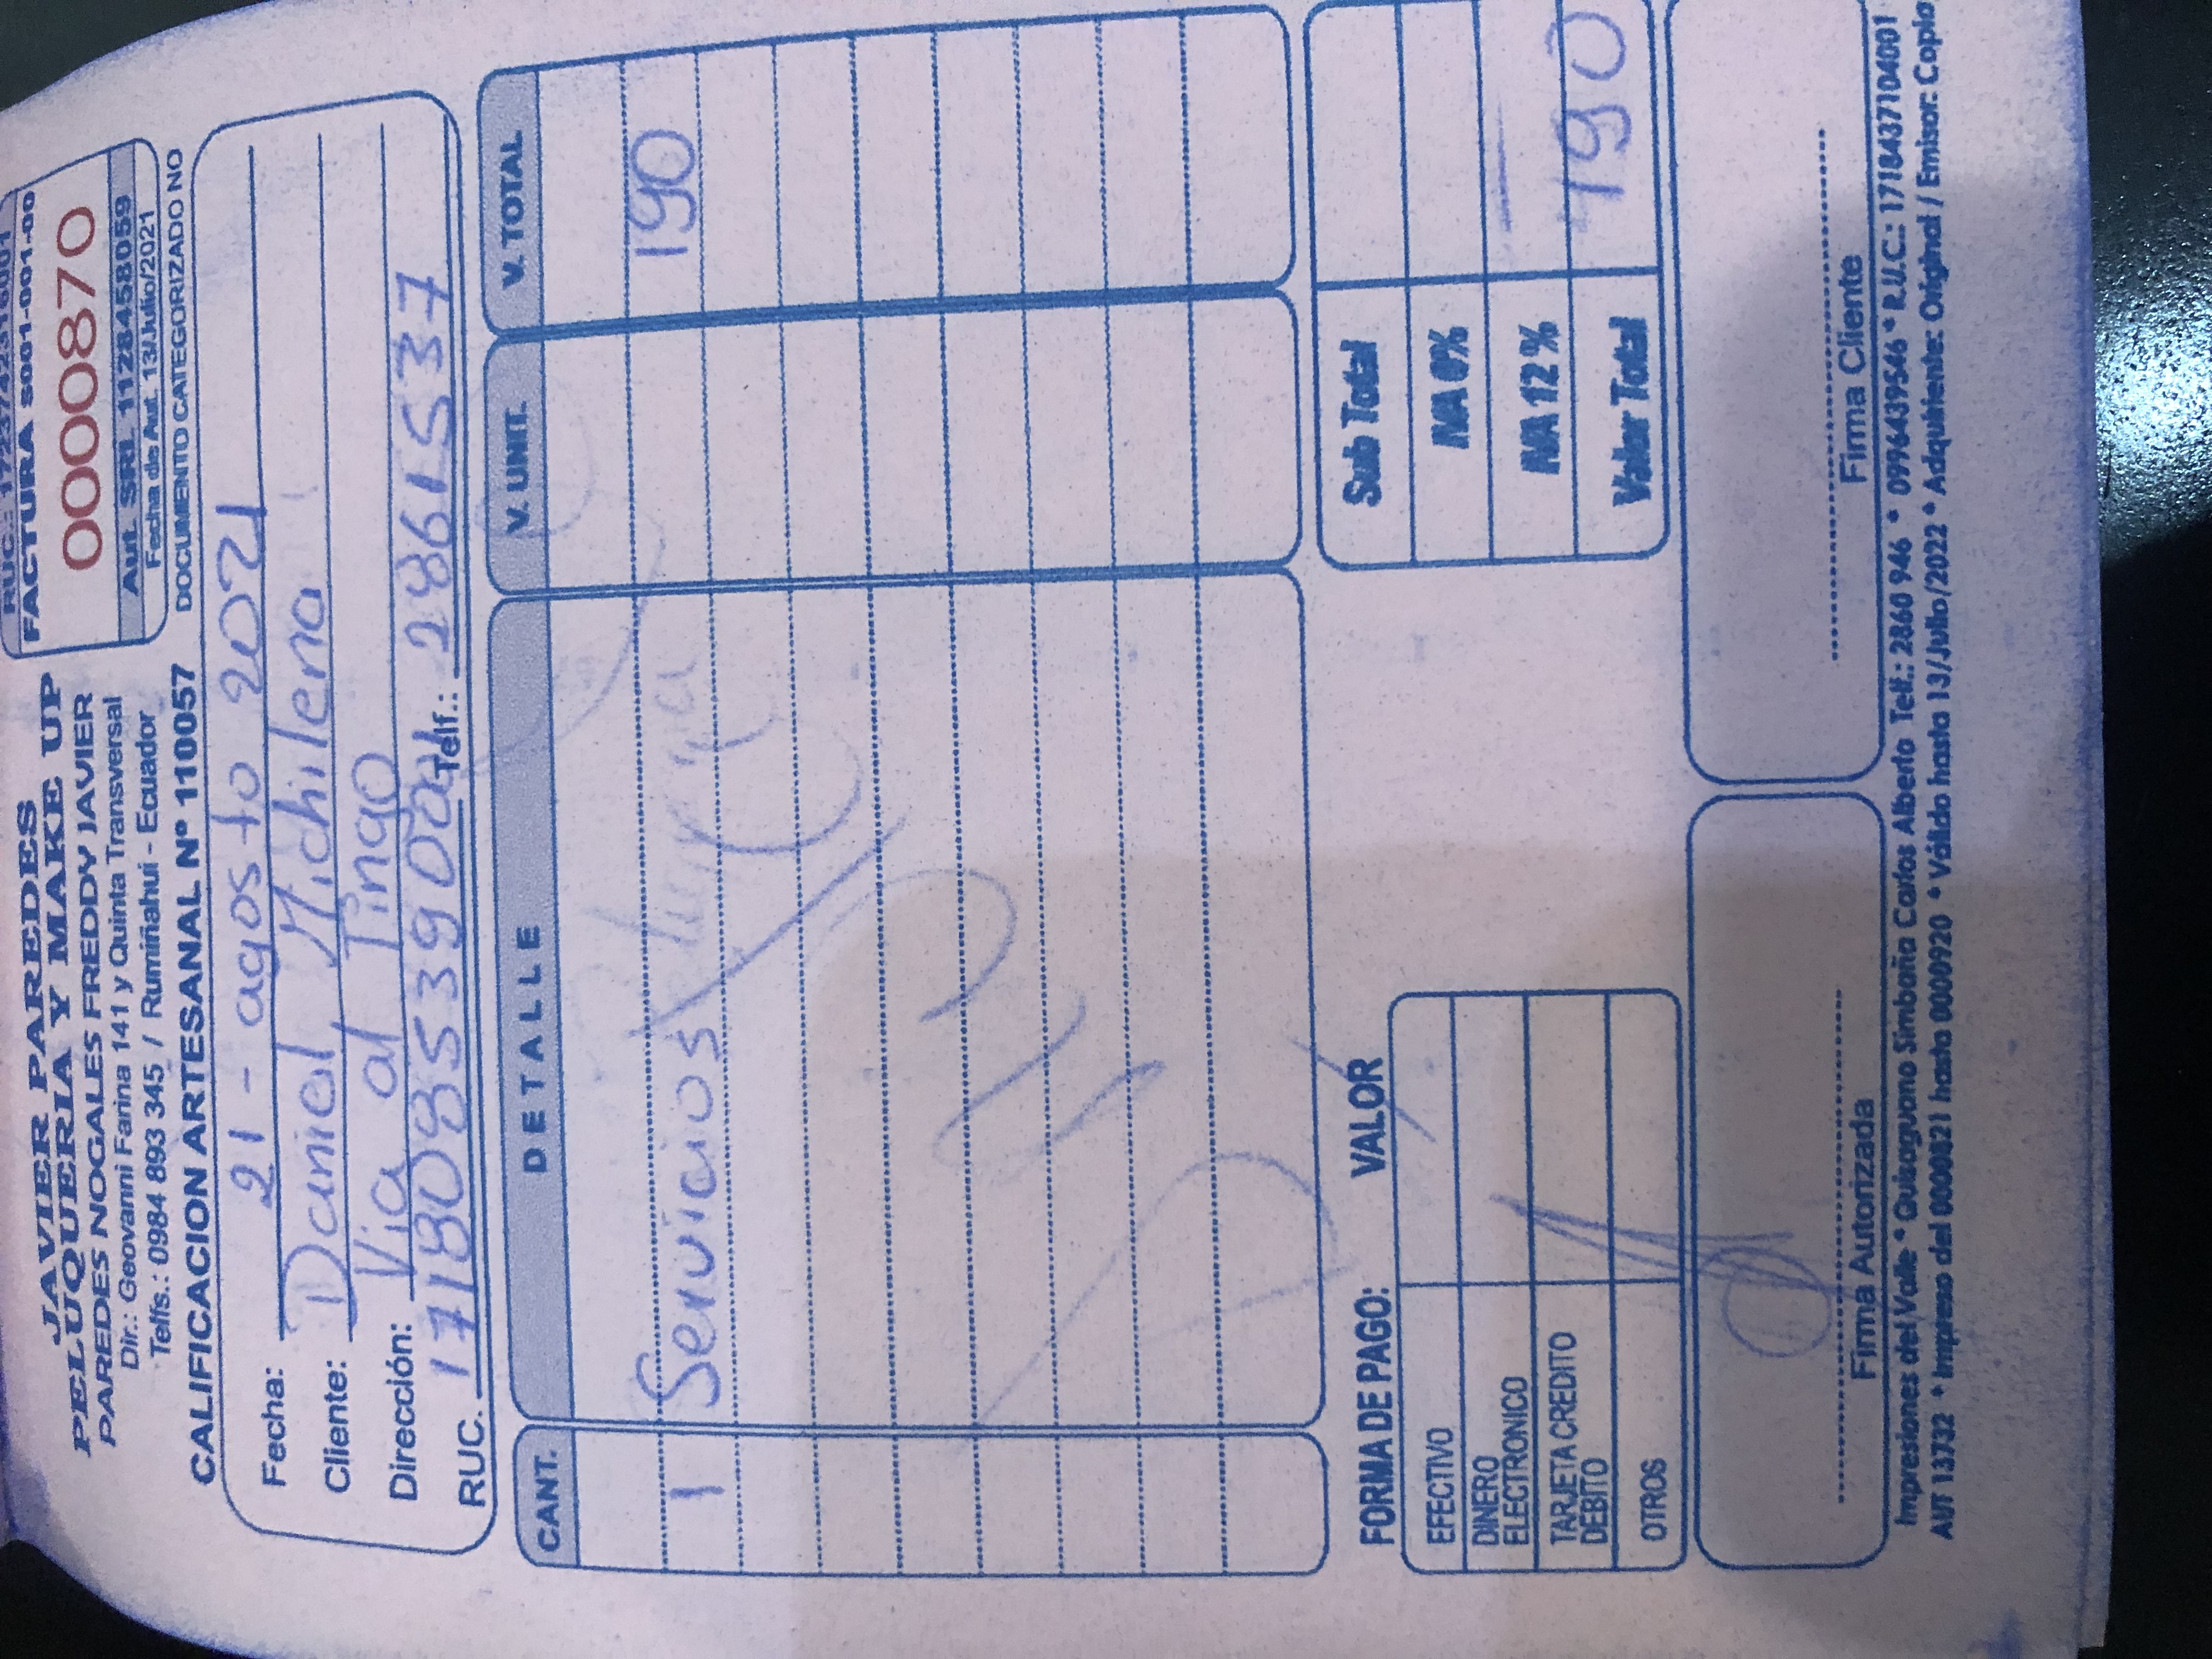 RUC.: 1723742316001
JAVIER PAREDES
PELUQUERIA Y MAKE UP
PAREDES NOGALES FREDDY JAVIER
Dir.: Geovanni Farina 141 y Quinta Transversal
Telfs.: 0984 893 345 / Rumiñahui - Ecuador
CALIFICACION ARTESANAL Nº 110057
FACTURA S001-001-00
0000870
Aut. SRI. 1128458059
Fecha de Aut. 13/Julio/2021
DOCUMENTO CATEGORIZADO NO
Fecha: 21 - agosto 2021
Cliente: Daniel Michilena
Dirección: Via al Tingo
RUC. 1718085390001 Telf.: 2861537
CANT. DETALLE V. UNIT. V. TOTAL
1 Servicios 190
FORMA DE PAGO: VALOR
EFECTIVO
DINERO ELECTRONICO
TARJETA CREDITO DEBITO
OTROS
Sub Total
IVA 0%
IVA 12 %
Valor Total 190
Firma Autorizada
Firma Cliente
Impresiones del Valle * Quisaguano Simbaña Carlos Alberto Telf.: 2860 946 * 0996439546 * R.U.C.: 1718437104001
AUT 13732 * Impreso del 0000821 hasta 0000920 * Válido hasta 13/Julio/2022 * Adquiriente: Original / Emisor: Copia